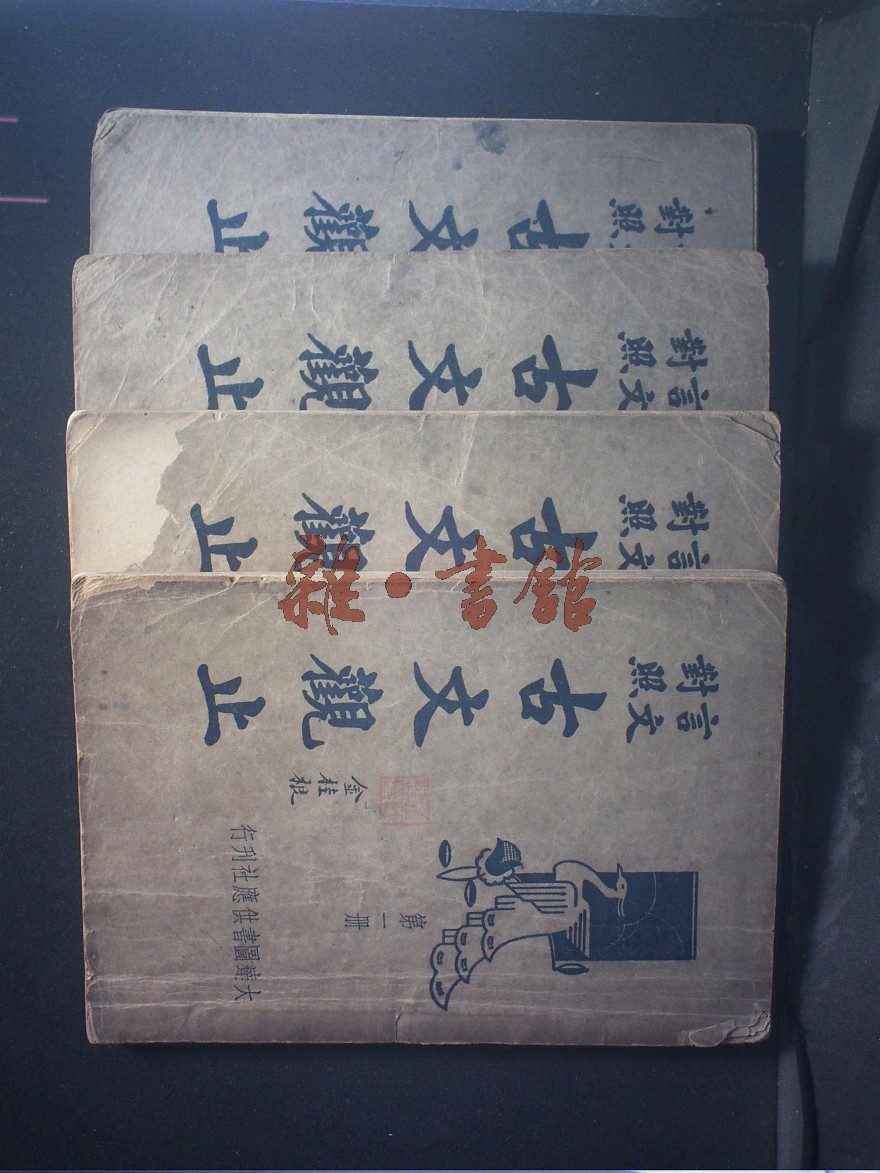 對照
古文觀止
言文
對照
古文觀止
言文
對照
古文觀止
言文
對照
古文觀止
第一冊
金桂根
大達圖書供應社刊行
書館